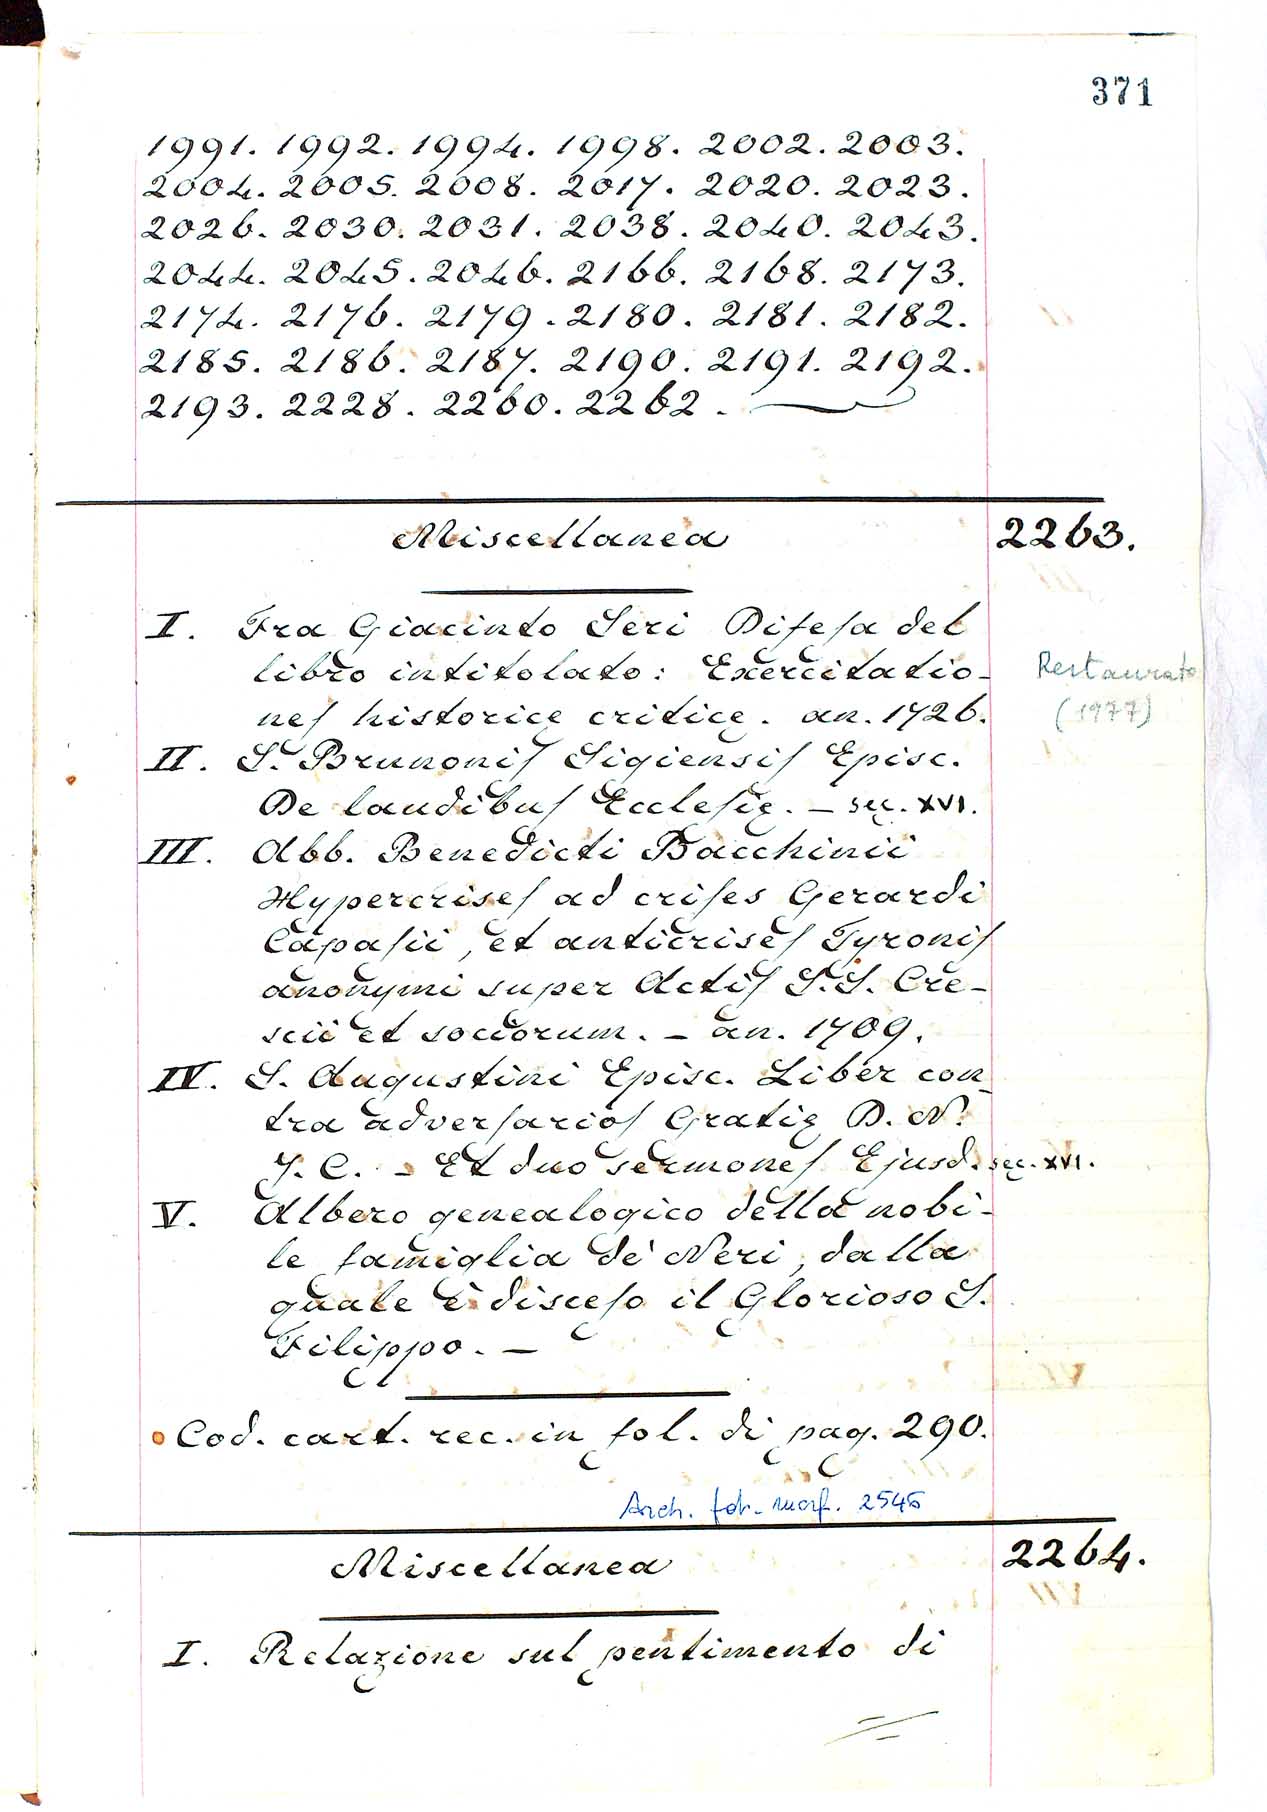 371
1991. 1992. 1994. 1998. 2002. 2003.
2004. 2005. 2008. 2017. 2020. 2023.
2026. 2030. 2031. 2038. 2040. 2043.
2044. 2045. 2046. 2166. 2168. 2173.
2174. 2176. 2179. 2180. 2181. 2182.
2185. 2186. 2187. 2190. 2191. 2192.
2193. 2228. 2260. 2262.
Miscellanea 2263.
I. Fra Giacinto Seri Difeſa del
libro intitolato: Exercitatio-
neſ historicę criticę. an. 1726.
Restaurato
(1977)
II. S. Brunoniſ Sigiensiſ Episc.
De laudibuſ Eccleſię. – sęc. XVI.
III. Abb. Benedicti Bacchinii
Hypercriseſ ad criſes Gerardi
Capaſii, et anticriseſ Tyroniſ
anonymi super Actiſ S.S. Cre-
scii et sociorum. – an. 1709.
IV. S. Augustini Episc. Liber con-
tra adverſarioſ Gratię D. N.
J. C. – Et duo sermoneſ Ejusd. sęc. XVI.
V. Albero genealogico della nobi-
le famiglia de' Neri, dalla
quale è disceſo il Glorioso S.
Filippo. –
Cod. cart. rec. in fol. di pag. 290.
Arch. fot. 2546
Miscellanea 2264.
I. Relazione sul pentimento di